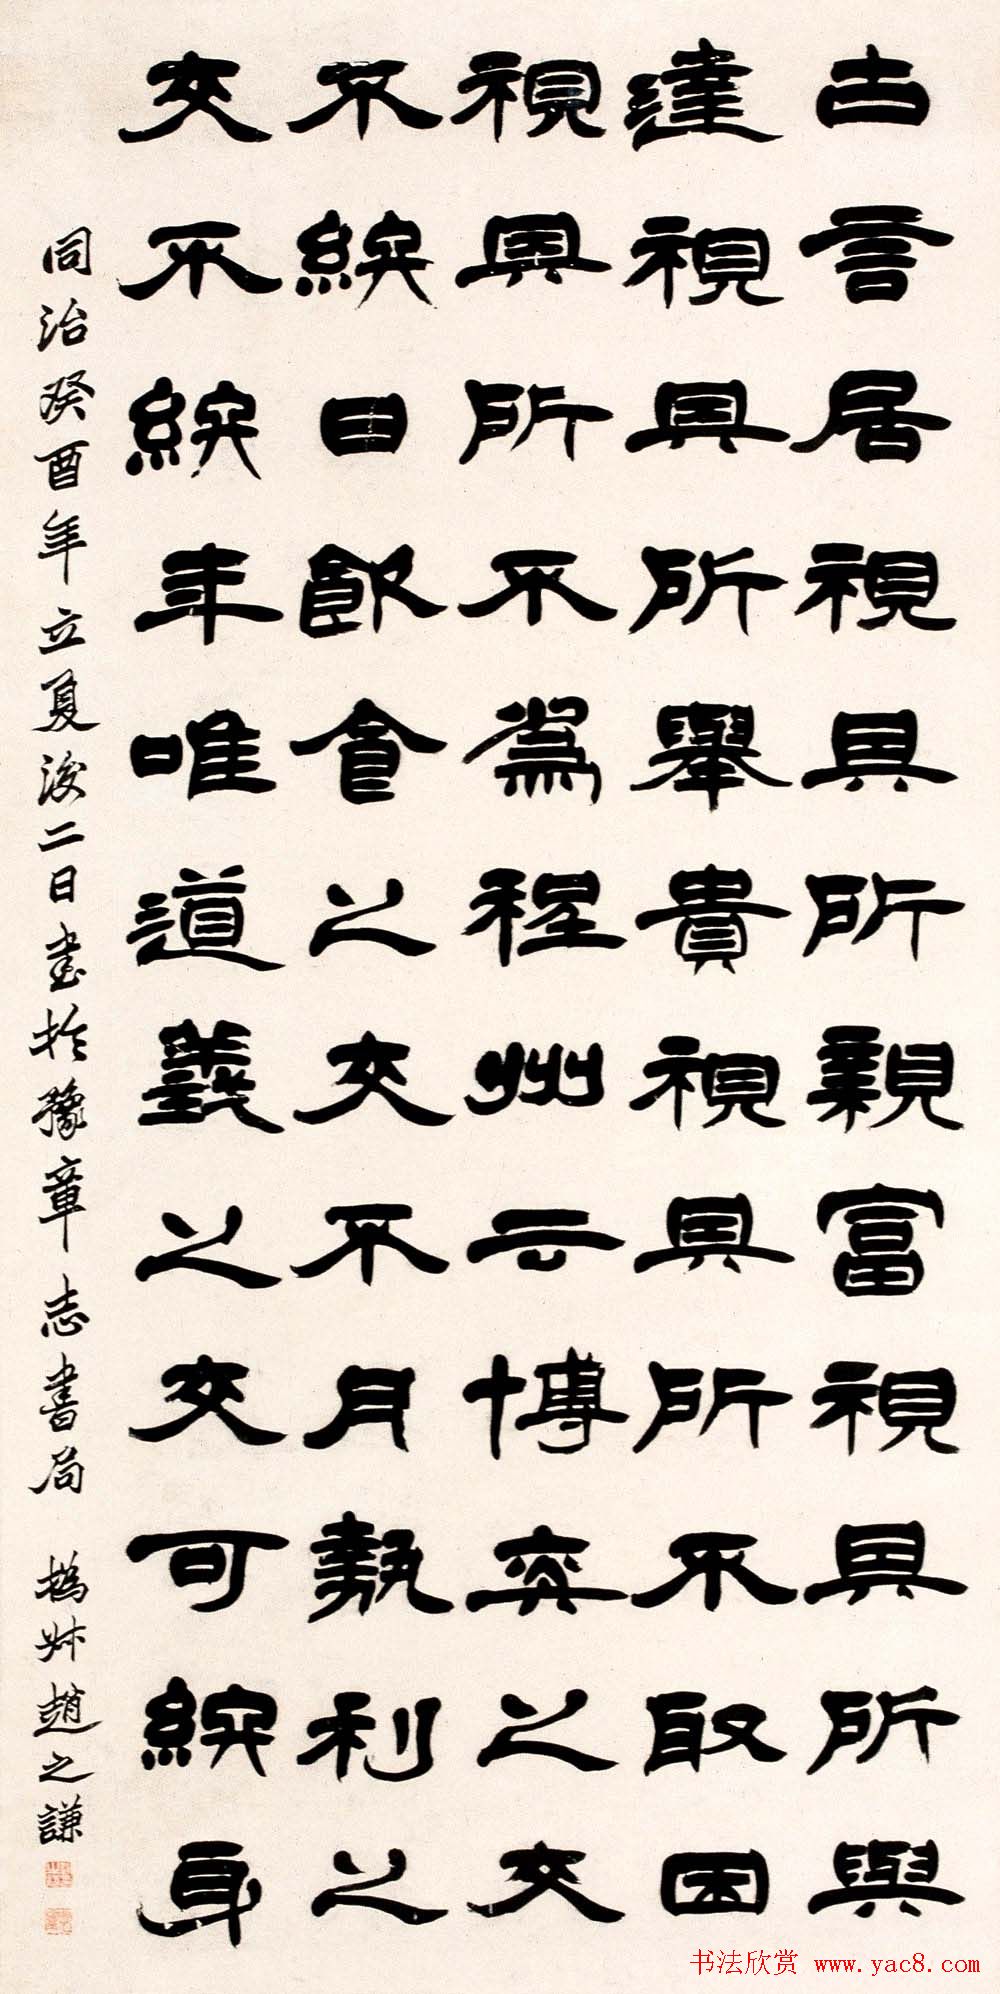 古言居視其所親富視其所與
達視其所舉貴視其所不取困
視其所不為程州云博弈之交
不終日飲食之交不月埶利之
交不終年唯道義之交可終身
同治癸酉年立夏後二日書於豫章志書局 撝叔趙之謙
书法欣赏 www.yac8.com